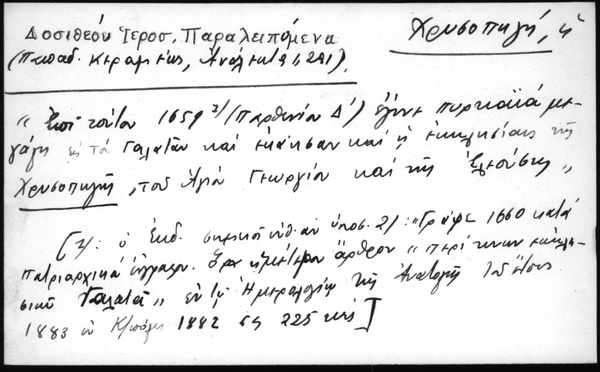 Δοσιθέου Ιεροσ. Παραλειπόμενα
Χρυσοπηγή, ἡ
(Παπαδ. Κεραμεύς, Ἀνάλεκτα 1, 291).
" Ἐπὶ τούτου 1659 2/ (Παρθενίου Δ') ἐγένετο πυρκαϊά με-
γάλη εἰς τὰ Γαλατᾶν καὶ ἐκάησαν καὶ ἡ ἐκκλησίαις τῆς
Χρυσοπηγῆς, τοῦ Ἁγίου Γεωργίου καὶ τῆς Ἐλεούσης "
[2/: ὁ Ἐκδ. σημειοῖ ὑποσ. 2/: "Γράφε 1660 κατὰ
πατριαρχικὰ ἔγγραφα. ἡμέτερον ἄρθρον " περί τινων ἐκκλη-
σιῶν Γαλατᾶ " ἐν τῷ Ἡμερολογίῳ τῆς Ἀνατολῆς τοῦ ἔτους
1883 ἐν Κ/πόλει 1882 σς 225 ]